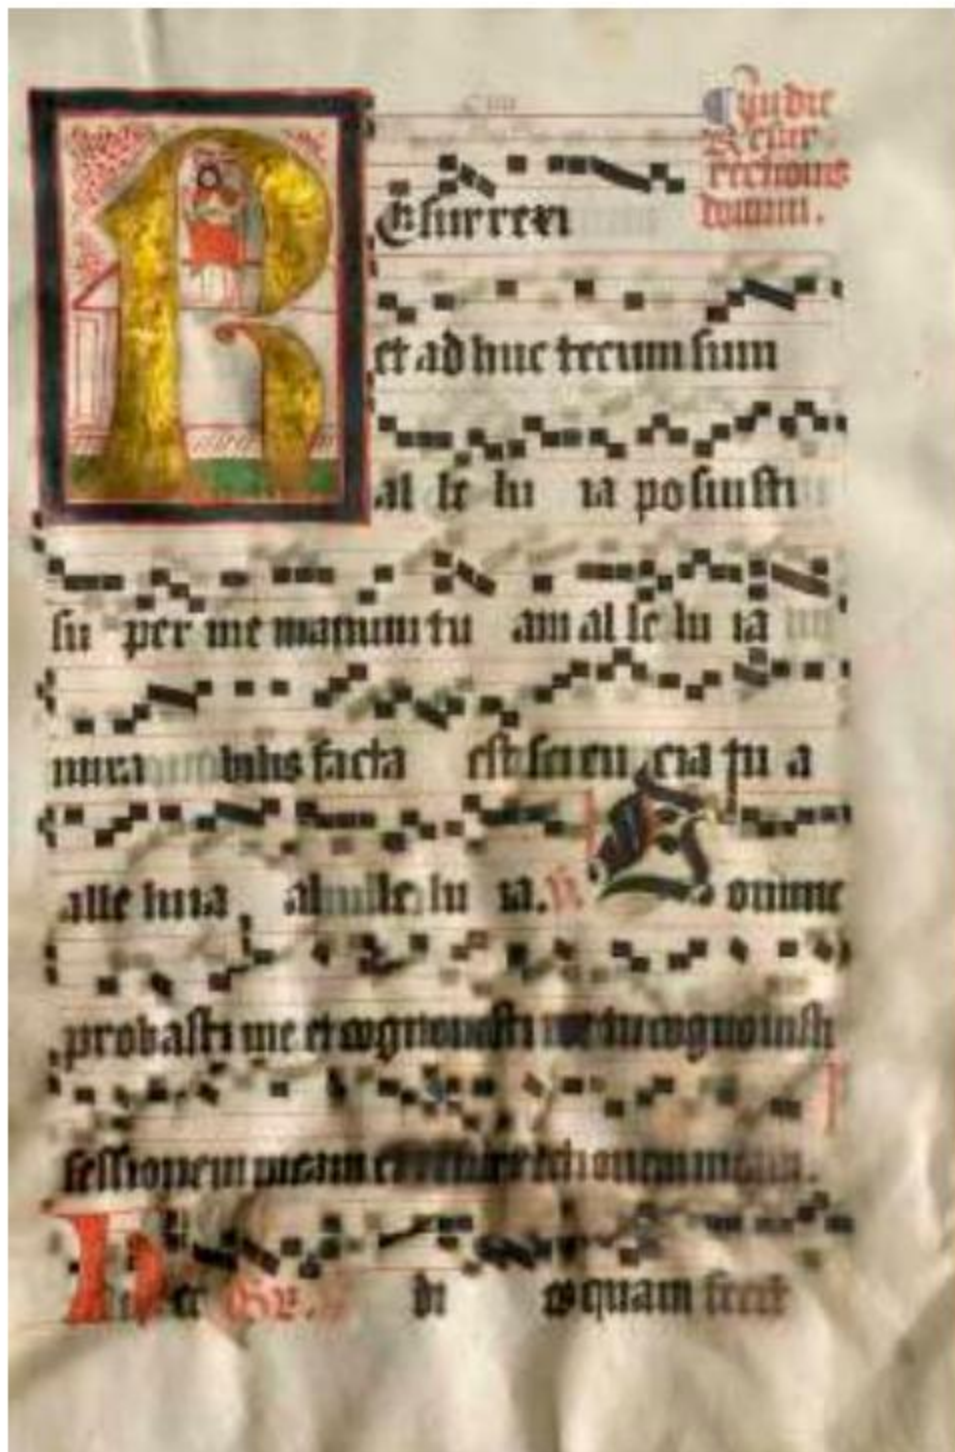 In die
Resur
rectionis
domini.
Resurrexi
et ad huc tecum sum
al le lu ia posuisti
su per me manum tu am al le lu ia
mira bilis facta est scien cia tu a
alle luia al le lu ia. Domine
probasti me et cognouisti me tu cognouisti
sessionem meam et resurrectionem meam.
Hec Gr. di es quam fecit